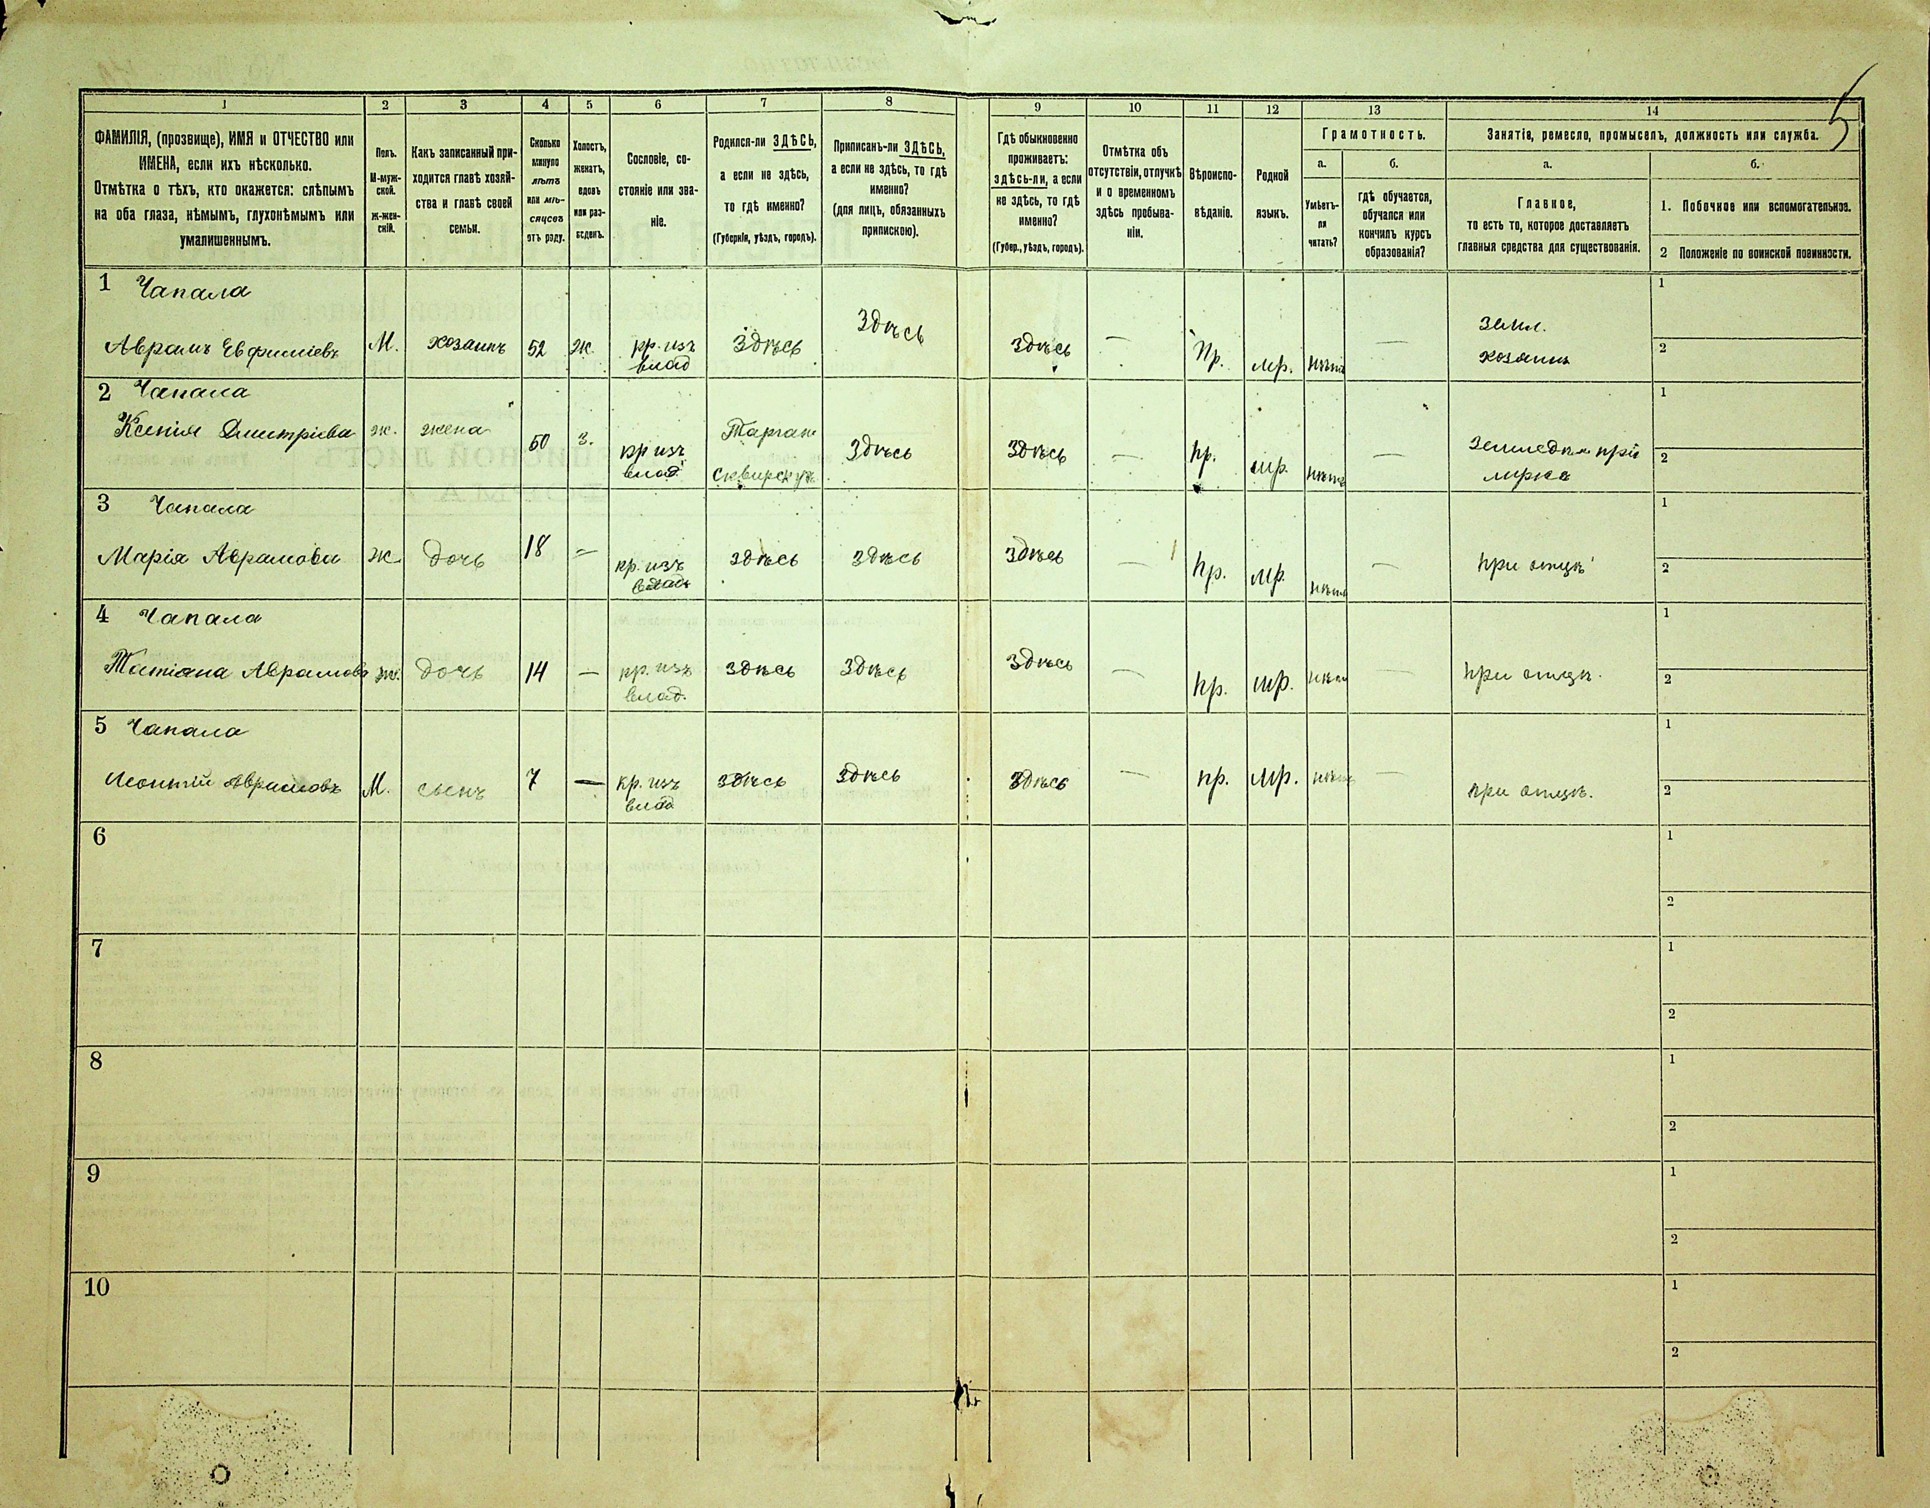 5
1 2 3 4 5 6 7 8 9 10 11 12 13 14
ФАМИЛІЯ, (прозвище), ИМЯ и ОТЧЕСТВО или
ИМЕНА, если ихъ нѣсколько.
Отмѣтка о тѣхъ, кто окажется: слѣпымъ
на оба глаза, нѣмымъ, глухонѣмымъ или
умалишеннымъ.
Полъ.
М-муж-
ской.
Ж-жен-
скій.
Какъ записанный при-
ходится главѣ хозяй-
ства и главѣ своей
семьи.
Сколько
минуло
лѣтъ
или мѣ-
сяцевъ
отъ роду.
Холостъ,
женатъ,
вдовъ
или раз-
веденъ.
Сословіе, со-
стояніе или зва-
ніе.
Родился-ли ЗДѢСЬ,
а если не здѣсь,
то гдѣ именно?
(Губернія, уѣздъ, городъ).
Приписанъ-ли ЗДѢСЬ,
а если не здѣсь, то гдѣ
именно?
(для лицъ, обязанныхъ
припискою).
Гдѣ обыкновенно
проживаетъ:
здѣсь-ли, а если
не здѣсь, то гдѣ
именно?
(Губер., уѣздъ, городъ).
Отмѣтка объ
отсутствіи, отлучкѣ
и о временномъ
здѣсь пребыва-
ніи.
Вѣроиспо-
вѣданіе.
Родной
языкъ.
Грамотность.
а.
Умѣетъ-
ли
читать?
б.
гдѣ обучается,
обучался или
кончилъ курсъ
образованія?
Занятіе, ремесло, промыселъ, должность или служба.
а.
Главное,
то есть то, которое доставляетъ
главныя средства для существованія.
б.
1. Побочное или вспомогательное.
2 Положеніе по воинской повинности.
1 Чапала
Аврамъ Евфиміевъ М. хозаинъ 52 ж. кр. изъ влад Здѣсь Здѣсь Здѣсь — Пр. мр. нѣтъ — земл. хозаинъ 1 2
2 Чапала
Ксенія Дмитріева ж. жена 50 з. кр изъ влад Здѣсь Здѣсь — пр. мр. нѣтъ — 1 2
3 Чапала
Марія Аврамова ж дочь 18 — кр. изъ влад здѣсь здѣсь здѣсь — пр. мр. нѣтъ — при отцѣ 1 2
4 Чапала
Татіана Аврамова ж. дочь 14 — кр. изъ влад. здѣсь здѣсь здѣсь — пр. мр. нѣтъ — при отцѣ. 1 2
5 Чапала
Леонтій Аврамовъ М. сынъ 7 — кр. изъ влад здѣсь здѣсь здѣсь — пр. мр. нѣтъ — при отцѣ. 1 2
6 1 2
7 1 2
8 1 2
9 1 2
10 1 2